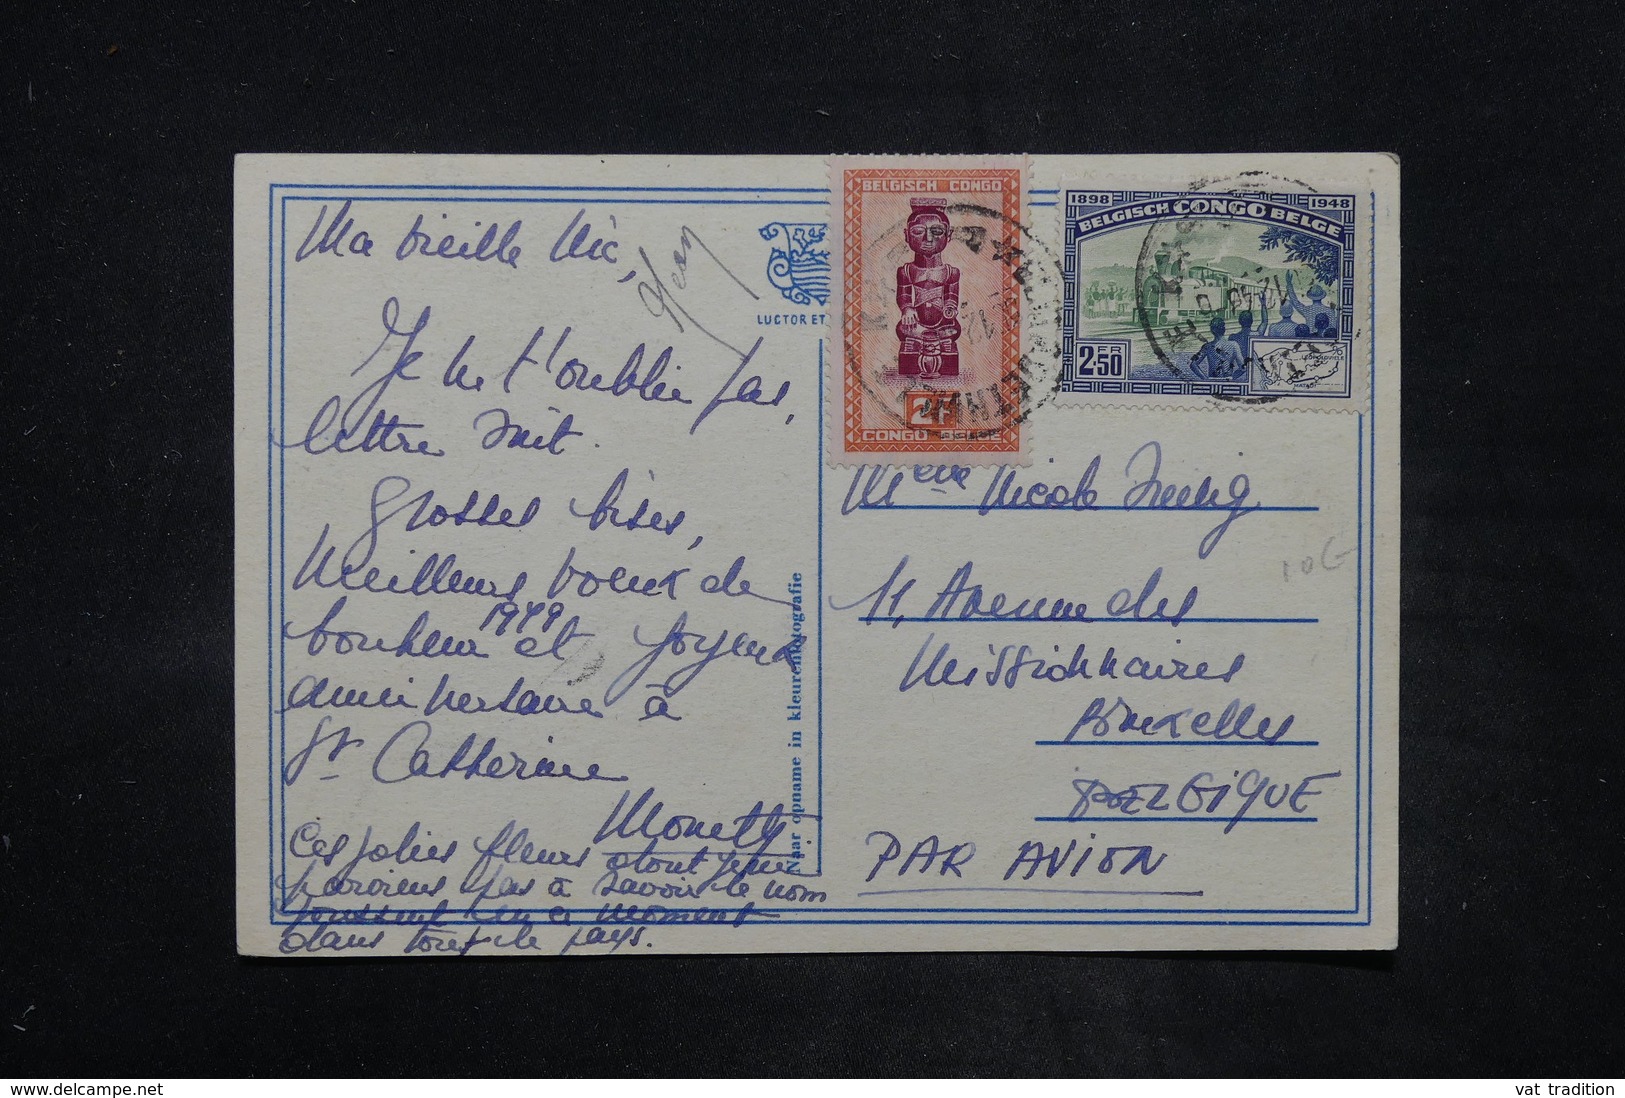 Ma vieille Nic,
Je ne t'oublie pas,
lettre suit.
Grosses bises,
Meilleurs voeux de
bonheur 1949 et joyeux
anniversaire à
St Catherine
Ces jolies fleurs dont je ne
parviens pas à savoir le nom
poussent en ce moment
dans tout le pays.
LUCTOR ET
Naar opname in kleurenfotografie
BELGISCH CONGO
2F
CONGO
1898 1948
BELGISCH CONGO BELGE
2FR50
LEOPOLDVILLE
MATADI
Nicole
11, Avenue des
Missionnaires
Bruxelles
BELGIQUE
PAR AVION
10€
vat tradition